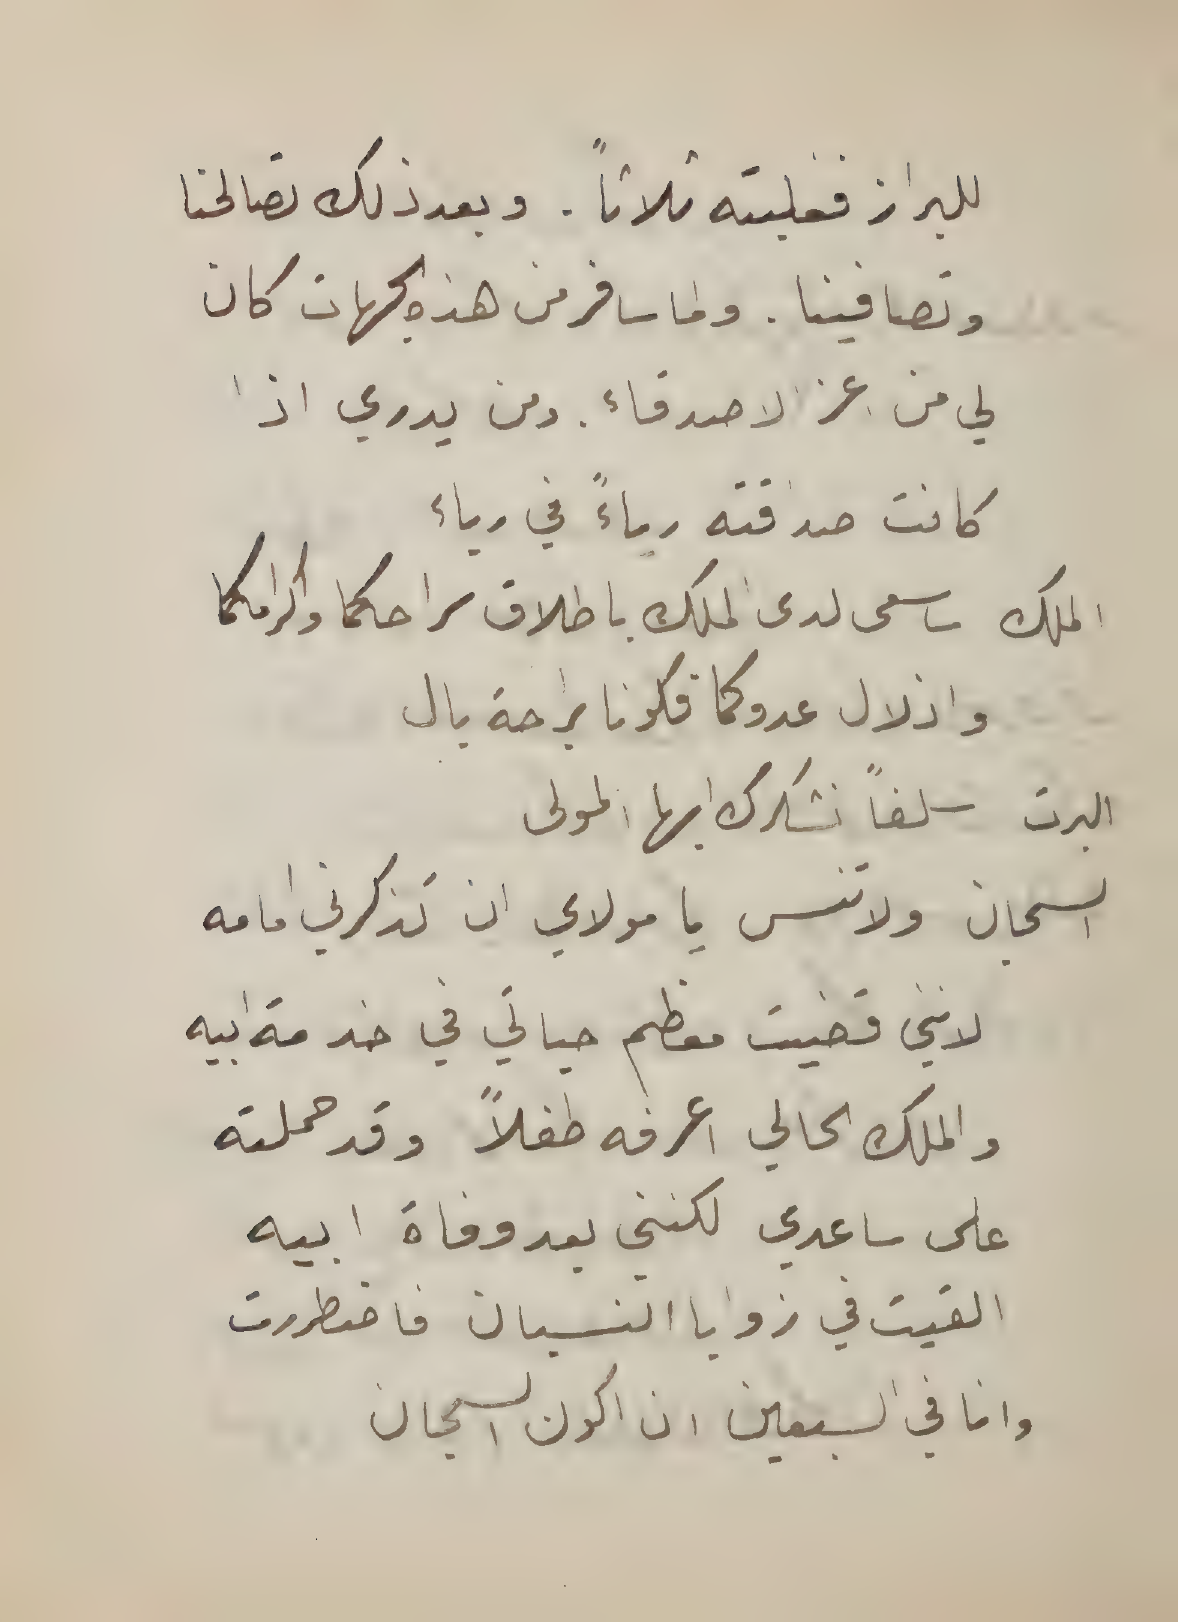 للبراز فغلبته ثلاثاً . وبعد ذلك تصالحنا
وتصافينا . ولما سافر من هذه الجهات كان
لي من اعز الاصدقاء . ومن يدري اذا
كانت صداقته رياءً في رياء
الملك ساسعى لدى الملك باطلاق سراحكما واكرامكما
واذلال عدوكما فكونا براحة بال
البرت سلفاً نشكرك ايها المولى
السجان ولا تنس يا مولاي ان تذكرني امامه
لانني قضيت معظم حياتي في خدمة ابيه
والملك الحالي اعرفه طفلاً وقد حملته
على ساعدي لكنني بعد وفاة ابيه
القيت في زوايا النسيان فاضطررت
وانا في السبعين ان اكون السجان